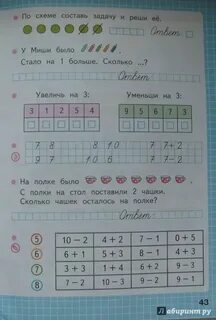 По схеме составь задачу и реши её.
Ответ
У Миши было
Стало на 1 больше. Сколько ...?
Ответ
Увеличь на 3: Уменьши на 3:
3 1 2 5 4 9 5 6 7 3
7 8 7 8 7 7-2
3 9 7 10 6 7 7+2
На полке было
С полки на стол поставили 2 чашки.
Сколько чашек осталось на полке?
Ответ
5 10 − 2 4 + 2 7 − 1 0 + 5
6 6 + 1 5 + 3 8 − 1 6 − 1
7 3 + 3 8 − 3 6 + 2 4 + 3
8 7 − 2 4 + 4 9 − 2 9 − 3
43
Лабиринт.ру